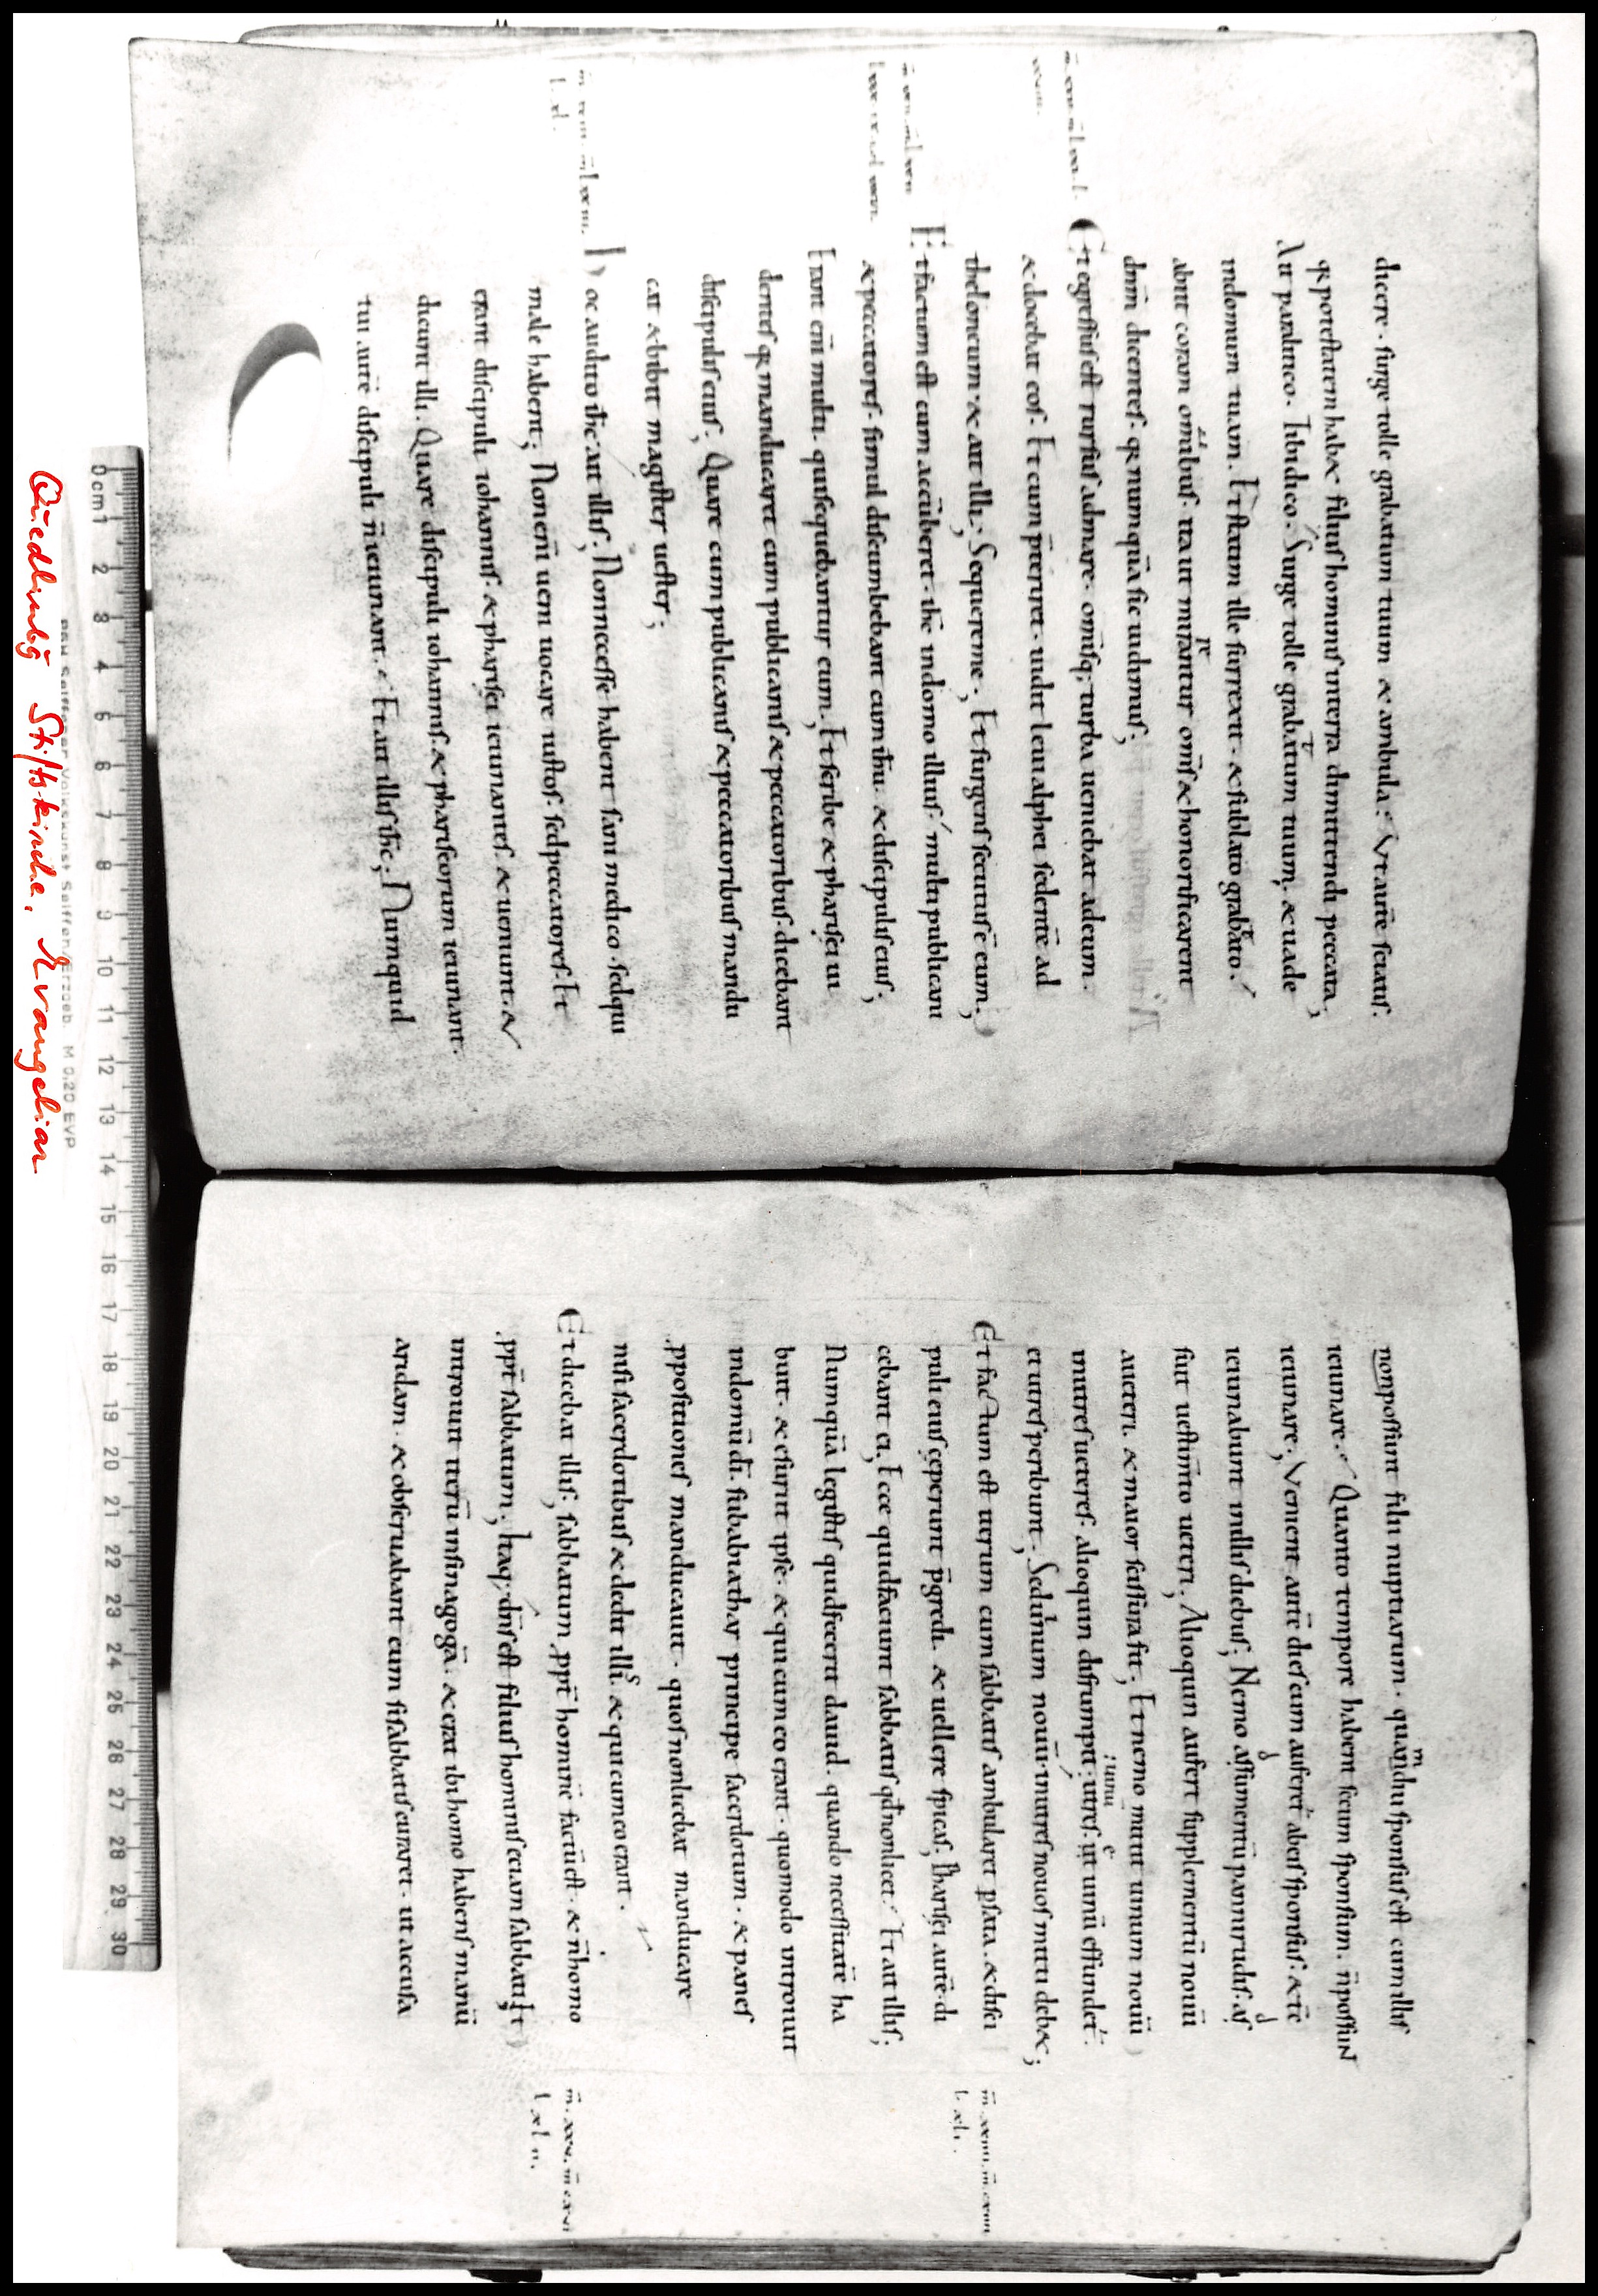 dicere · surge tolle grabatum tuum & ambula ; Vt autē sciatis ·
q̄a potestatem hab& filius hominis interra dimittendi peccata ;
Ait paralitico · Tibi dico · Surge tolle grabatum tuum · & uade
indomum tuam · Et statim ille surrexit · & sublato grabato ·
abiit coram omībus · ita ut mirantur om̄s & honorificarent
dn̄m dicentes · q̄a numquā sic uidimus ;
Et egressus est rursus admare · om̄isq; turba ueniebat adeum ·
& docebat eos · Et cum p̄teriret · uidit leui alphei sedentē ad
theloneum · & ait illi ; Sequereme ; Et surgens secutus ē eum ;
Et factum est cum accūberet · ih̄c indomo illius · multi publicani
& peccatores · simul discumbebant cum ih̄u · & discipulis eius ;
Erant em̄ multi · qui sequebantur eum ; Et scribe & pharisei ui
dentes q̄a manducaret cum publicanis & peccatoribus · dicebant
discipulis eius ; Quare cum publicanis & peccatoribus mandu
cat & bibit magister uester ;
hoc audito ih̄c ait illis ; Non necesse habent sani medico · sedqui
male habent ; Non em̄ ueni uocare iustos · sed peccatores · Et
erant discipuli iohannis · & pharisei ieiunantes · & ueniunt · &
dicunt illi · Quare discipuli iohannis · & phariseorum ieiunant ·
tui autē discipuli n̄ ieiunant · Et ait illis ih̄c ; Numquid
m̄ xxiii · m̄ l xxiii ·
l xl ·
nonpossunt filii nuptiarum · quamdiu sponsus est cum illis
ieiunare · Quanto tempore habent secum sponsum · n̄ possunt
ieiunare ; Venient autē dies cum auferet̄ abeis sponsus · & tc̄
ieiunabunt inillis diebus ; Nemo assumentū panni rudis · as
suit uestim̄to ueteri ; Alioquin aufert supplementū nouū
aueteri · & maior scissura fit ; Et nemo mittit uinum nouū
inutres ueteres · alioquin disrumpit · utres · ut uinū effundet̄ ·
et utres peribunt ; Sed uinum nouū · inutres nouos mitti deb& ;
Et factum est iterum cum sabbatis ambularet p̄ sata · & disci
puli eius ceperunt p̄gredi · & uellere spicas ; Pharisei autē · di
cebant ei ; Ecce quid faciunt sabbatis qđ nonlicet · Et ait illis ;
Numquā legistis quid fecerit dauid · quando necessitatē ha
buit · & esuriit ipse · & qui cum eo erant · quomodo introiuit
indomū dī · sub abiathar principe sacerdotum · & panes
ppositiones manducauit · quos nonlicebat manducare
nisi sacerdotibus & dedit illis · & qui cum eo erant ·
Et dicebat illis ; sabbatum ppt̄ hominē factū est · & n̄ homo
ppt̄ sabbatum ; Itaq; dn̄s est filius hominis eciam sabbati ; Et
introiuit iterū insinagogā · & erat ibi homo habens manū
aridam · & obseruabant eum si sabbatis curaret · ut accusa
m̄ xxiiii · m̄ cxiiii
l xli ·
m̄ · xxv · m̄ cxvi
l xl ii ·
0cm1 2 3 4 5 6 7 8 9 10 11 12 13 14 15 16 17 18 19 20 21 22 23 24 25 26 27 28 29 30
Volkskunst Seiffen/Erzgeb. M 0,20 EVP
Quedlinbg Stiftskirche, Evangeliar